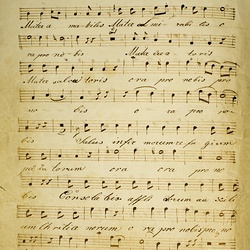 Mater a ma bilis Mater admi rabi lis o
ra pro no bis Mater Crea toris
Mater salva toris ora pro nobis pro
no bis o ra pro no
bis Salus infir morum re fu gium
pec ca torum ora ora pro no
bis Consola trix affli
um ora pro nobis